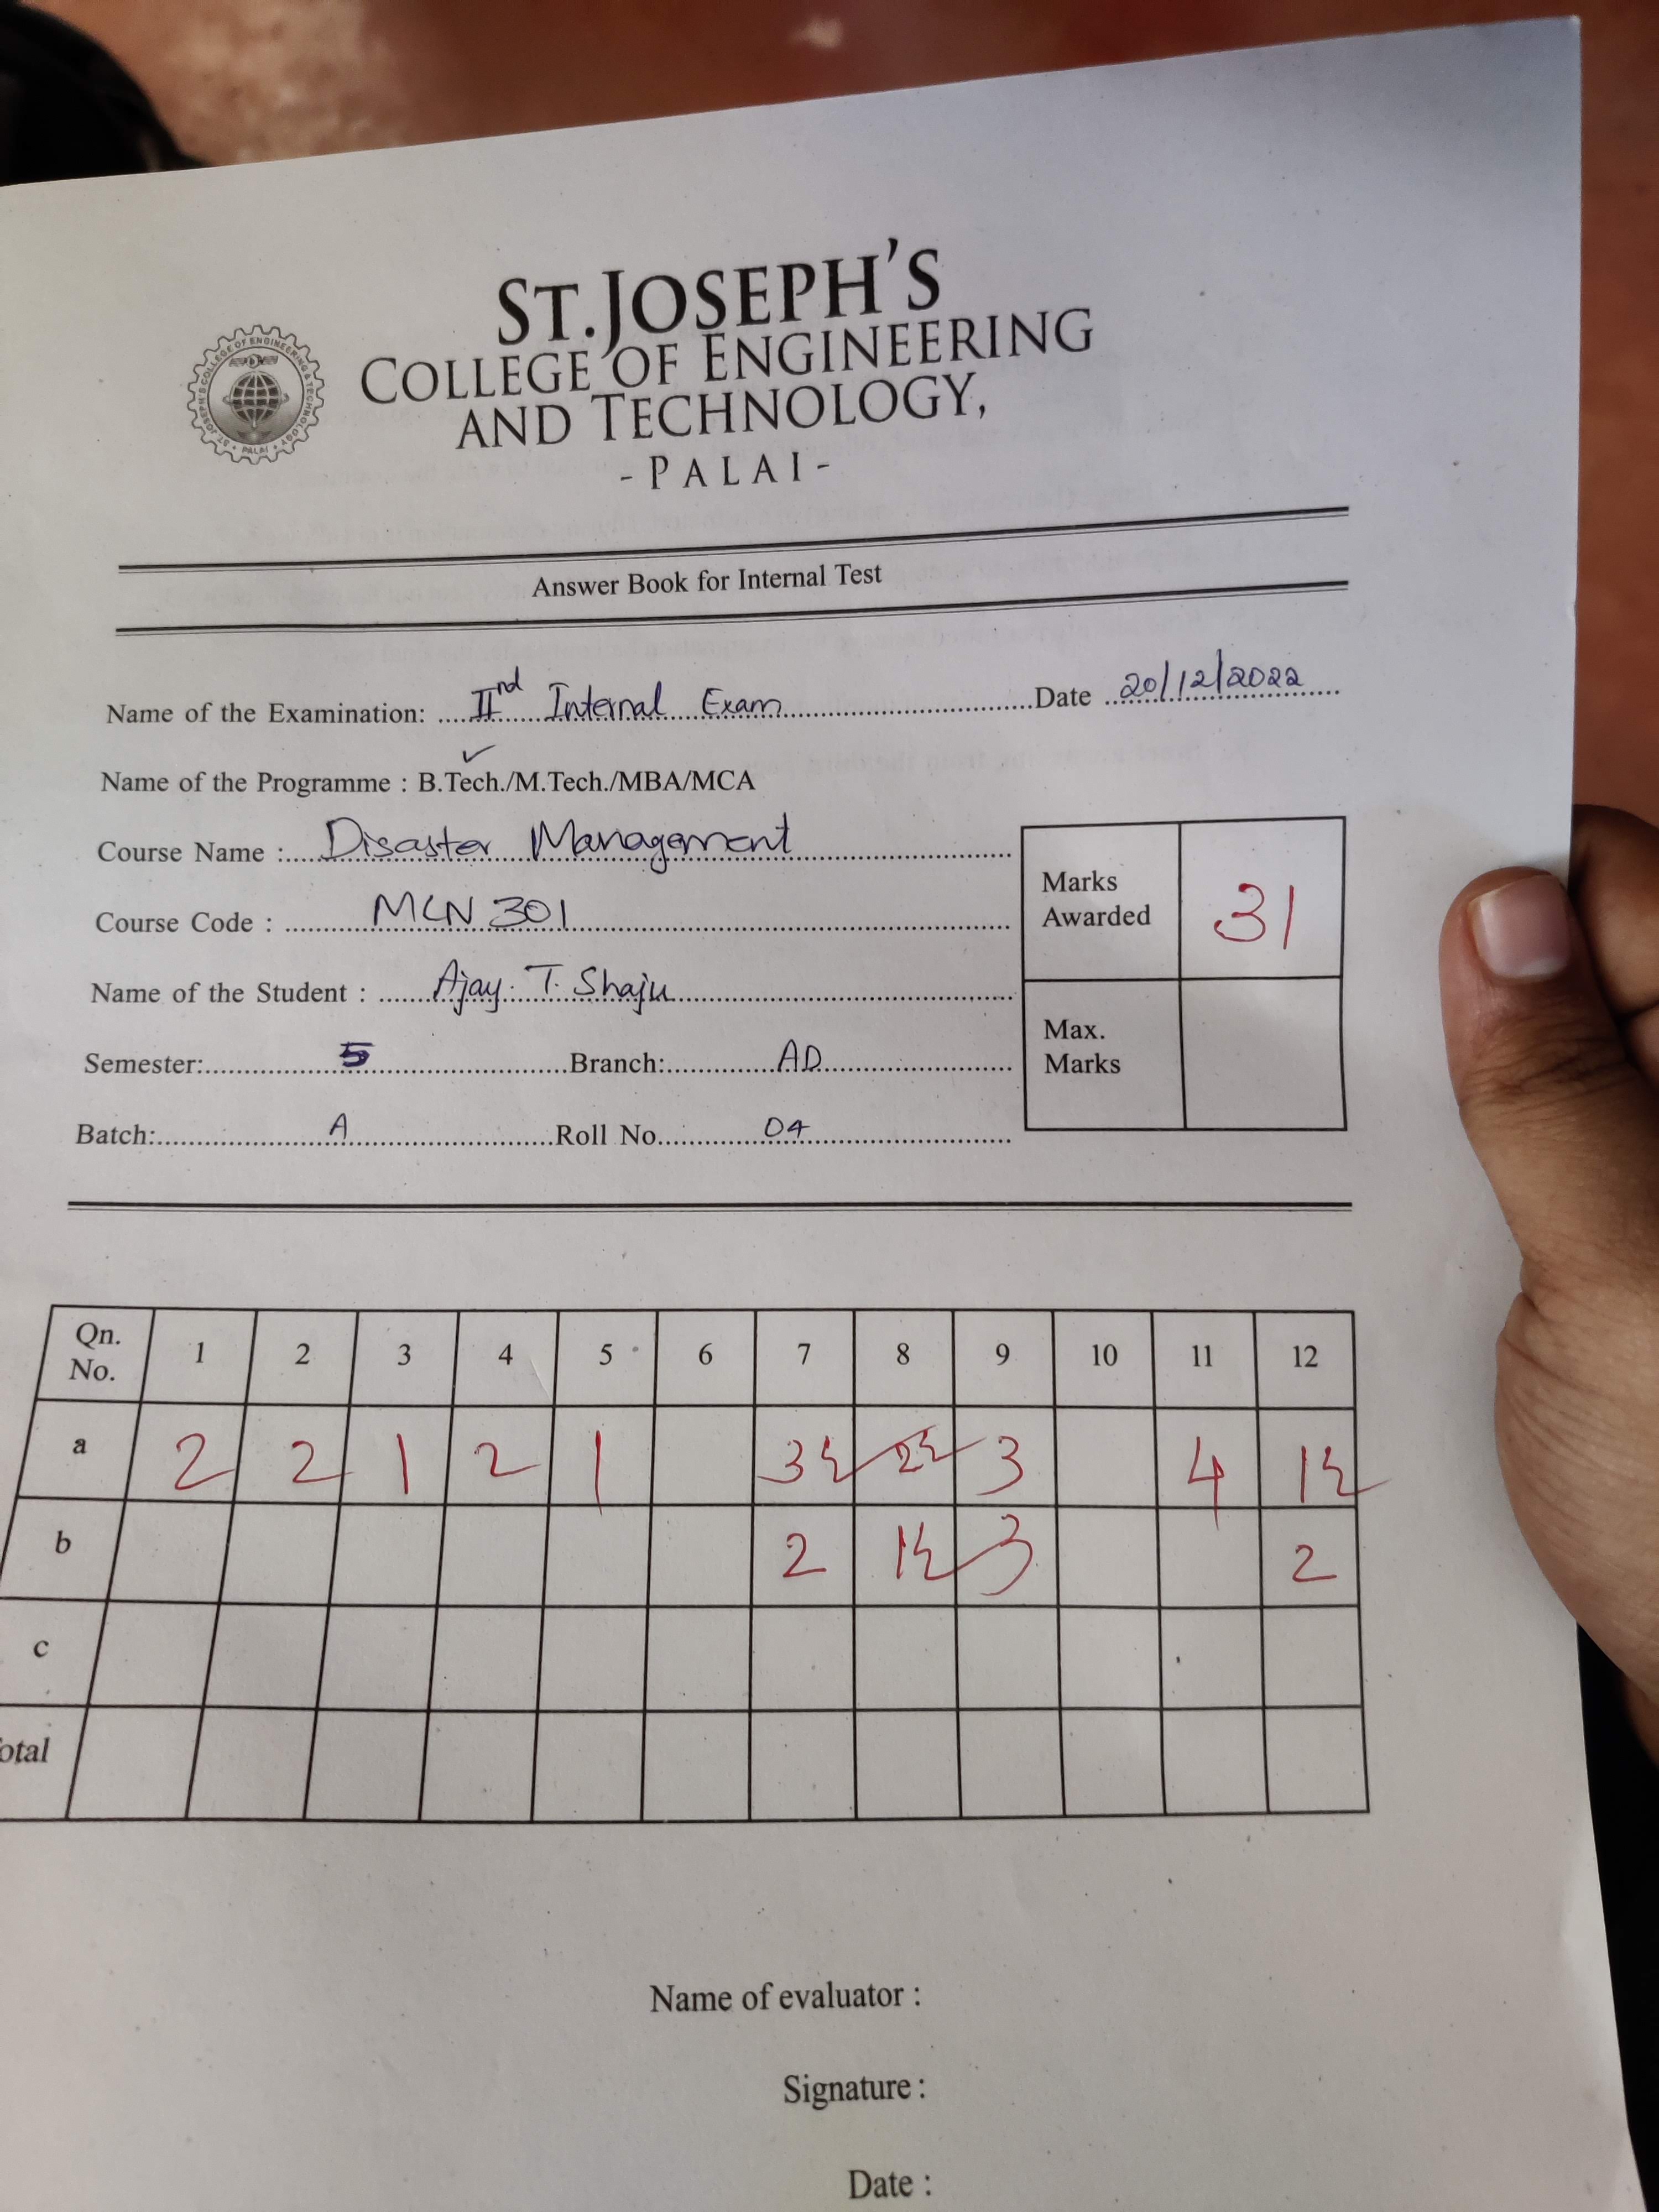 ST.JOSEPH'S
COLLEGE OF ENGINEERING
AND TECHNOLOGY,
- PALAI -
ST.JOSEPH'S COLLEGE OF ENGINEERING & TECHNOLOGY
PALAI
Answer Book for Internal Test
Name of the Examination: IInd Internal Exam Date 20/12/2022
Name of the Programme : B.Tech./M.Tech./MBA/MCA
Course Name : Disaster Management
Course Code : MCN 301
Name of the Student : Ajay. T. Shaju
Semester: 5 Branch: AD
Batch: A Roll No. 04
Marks Awarded 31
Max. Marks
Qn. No. 1 2 3 4 5 6 7 8 9 10 11 12
a 2 2 1 2 1 3½ 2½ 3 4 1½
b 2 1½ 3 2
c
otal
Name of evaluator :
Signature :
Date :